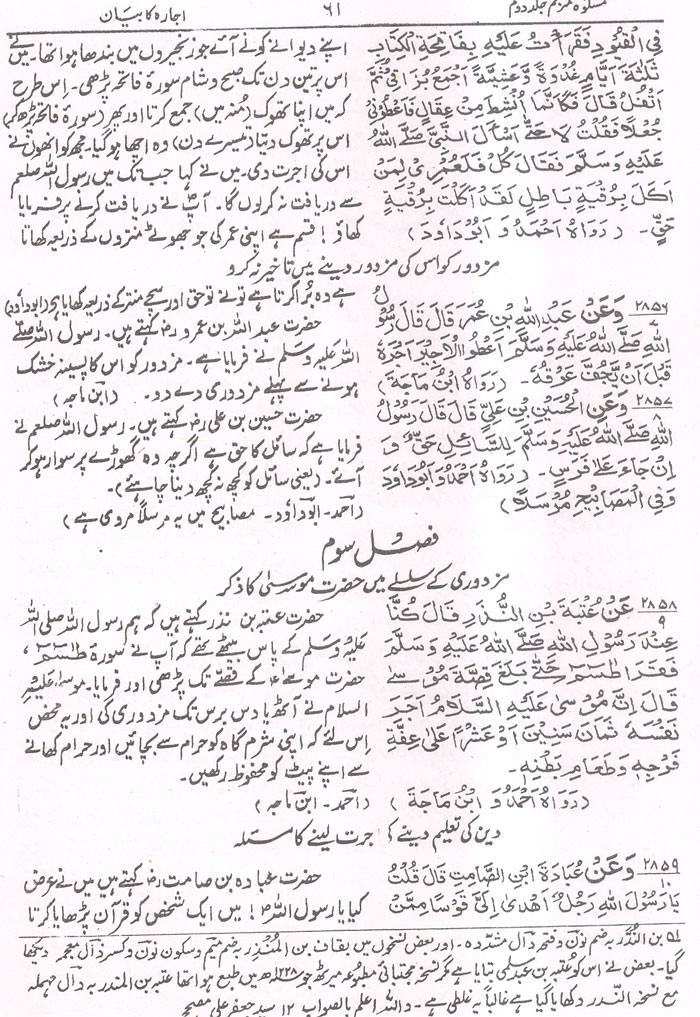 مشکوٰۃ مترجم جلد دوم
۶۱
اجارہ کا بیان
فِي الْقُيُودِ فَقَرَأْتُ عَلَيْهِ بِفَاتِحَةِ الْكِتَابِ
ثَلٰثَةَ اَيَّامٍ غُدْوَةً وَّعَشِيَّةً اَجْمَعُ بُزَاقِيْ ثُمَّ
اَتْفُلُ قَالَ فَكَاَنَّمَا اُنْشِطَ مِنْ عِقَالٍ فَاَعْطَوْنِيْ
جُعْلًا فَقُلْتُ لَا حَتّٰى اَسْأَلَ النَّبِيَّ صَلَّى اللهُ
عَلَيْهِ وَسَلَّمَ فَقَالَ كُلْ فَلَعَمْرِيْ لَمَنْ
اَكَلَ بِرُقْيَةٍ بَاطِلٍ لَقَدْ اَكَلْتَ بِرُقْيَةٍ
حَقٍّ۔ (رَوَاهُ اَحْمَدُ وَ اَبُوْدَاوٗدَ)
اپنے دیوانے کو لے آئے جو زنجیروں میں بندھا ہوا تھا۔ میں نے
اس پر تین دن تک صبح و شام سورۂ فاتحہ پڑھی۔ اس طرح
کہ میں اپنا تھوک (منہ میں) جمع کرتا اور پھر (سورۂ فاتحہ پڑھ کر)
اس پر تھوک دیتا (تیسرے دن) وہ اچھا ہو گیا۔ مجھ کو انھوں نے
اس کی اجرت دی۔ میں نے کہا جب تک میں رسول اللہ صلعم
سے دریافت نہ کر لوں گا۔ آپ نے دریافت کرنے پر فرمایا
کھاؤ! قسم ہے اپنی عمر کی جو جھوٹے منتروں کے ذریعہ کھاتا
مزدور کو اس کی مزدوری دینے میں تاخیر نہ کرو
ہے وہ برا کرتا ہے تو نے تو حق اور سچے منتر کے ذریعہ کھایا ہے (ابوداؤد)
۲۸۵۶ وَعَنْ عَبْدِ اللهِ بْنِ عُمَرَ قَالَ قَالَ رَسُوْلُ
۷
اللهِ صَلَّى اللهُ عَلَيْهِ وَسَلَّمَ اَعْطُوا الْاَجِيْرَ اَجْرَهٗ
قَبْلَ اَنْ يَّجِفَّ عَرَقُهٗ۔ (رَوَاهُ ابْنُ مَاجَةَ)
حضرت عبد اللہ بن عمرو رض کہتے ہیں۔ رسول اللہ صلے
اللہ علیہ وسلم نے فرمایا ہے۔ مزدور کو اس کا پسینہ خشک
ہونے سے پہلے مزدوری دے دو۔ (ابن ماجہ)
۲۸۵۷ وَعَنِ الْحُسَيْنِ بْنِ عَلِيٍّ قَالَ قَالَ رَسُوْلُ
۸
اللهِ صَلَّى اللهُ عَلَيْهِ وَسَلَّمَ لِلسَّائِلِ حَقٌّ وَ
اِنْ جَاءَ عَلٰى فَرَسٍ۔ (رَوَاهُ اَحْمَدُ وَ اَبُوْدَاوٗدَ
وَفِي الْمَصَابِيْحِ مُرْسَلًا)
حضرت حسین بن علی رض کہتے ہیں۔ رسول اللہ صلعم نے
فرمایا ہے کہ سائل کا حق ہے اگرچہ وہ گھوڑے پر سوار ہو کر
آئے۔ (یعنی سائل کو کچھ نہ کچھ دینا چاہئے)۔
(احمد۔ ابوداؤد۔ مصابیح میں یہ مرسلاً مروی ہے)
فصل سوم
مزدوری کے سلسلے میں حضرت موسیٰ کا ذکر
۲۸۵۸ عَنْ عُتْبَةَ بْنِ النُّدَّرِ قَالَ كُنَّا
۹
عِنْدَ رَسُوْلِ اللهِ صَلَّى اللهُ عَلَيْهِ وَسَلَّمَ
فَقَرَأَ طٰسٓمّٓ حَتّٰى بَلَغَ قِصَّةَ مُوْسٰى
قَالَ اِنَّ مُوْسٰى عَلَيْهِ السَّلَامُ اٰجَرَ
نَفْسَهٗ ثَمَانَ سِنِيْنَ اَوْ عَشْرًا عَلٰى عِفَّةِ
فَرْجِهٖ وَطَعَامِ بَطْنِهٖ۔
(رَوَاهُ اَحْمَدُ وَ ابْنُ مَاجَةَ)
حضرت عتبہ بن ندر کہتے ہیں کہ ہم رسول اللہ صلی اللہ
علیہ وسلم کے پاس بیٹھے تھے کہ آپ نے سورۂ طٰسٓمّٓ،
حضرت موسےٰ ع کے قصّے تک پڑھی اور فرمایا۔ موسیٰ علیہ
السلام نے آٹھ یا دس برس تک مزدوری کی اور یہ محض
اس لئے کہ اپنی شرم گاہ کو حرام سے بچائیں اور حرام کھانے
سے اپنے پیٹ کو محفوظ رکھیں۔
(احمد۔ ابن ماجہ)
دین کی تعلیم دینے کی اجرت لینے کا مسئلہ
۲۸۵۹ وَعَنْ عُبَادَةَ ابْنِ الصَّامِتِ قَالَ قُلْتُ
۱۰
يَا رَسُوْلَ اللهِ رَجُلٌ اَهْدٰى اِلَيَّ قَوْسًا مِمَّنْ
حضرت عبادہ بن صامت رض کہتے ہیں میں نے عرض
کیا یا رسول اللہ! میں ایک شخص کو قرآن پڑھایا کرتا
لہ بن النُّدَّر بہ ضم نون و فتح دال مشددہ۔ اور بعض نسخوں میں بقاف بن المُنذِر بہ ضم میم و سکون نون و کسر ذال معجمہ دیکھا
گیا۔ بعض نے اس کو عتبہ بن عبد سلمی بتایا ہے مگر نسخہ مجتبائی مطبوعہ میرٹھ جو ۱۲۳۸ھ میں طبع ہوا تھا عتبہ بن المندر بہ دال مہملہ
مع نسخہ الندر دکھایا گیا ہے غالباً یہ غلطی ہے۔ واللہ اعلم بالصواب ۱۲ سید جعفر علی مصحح